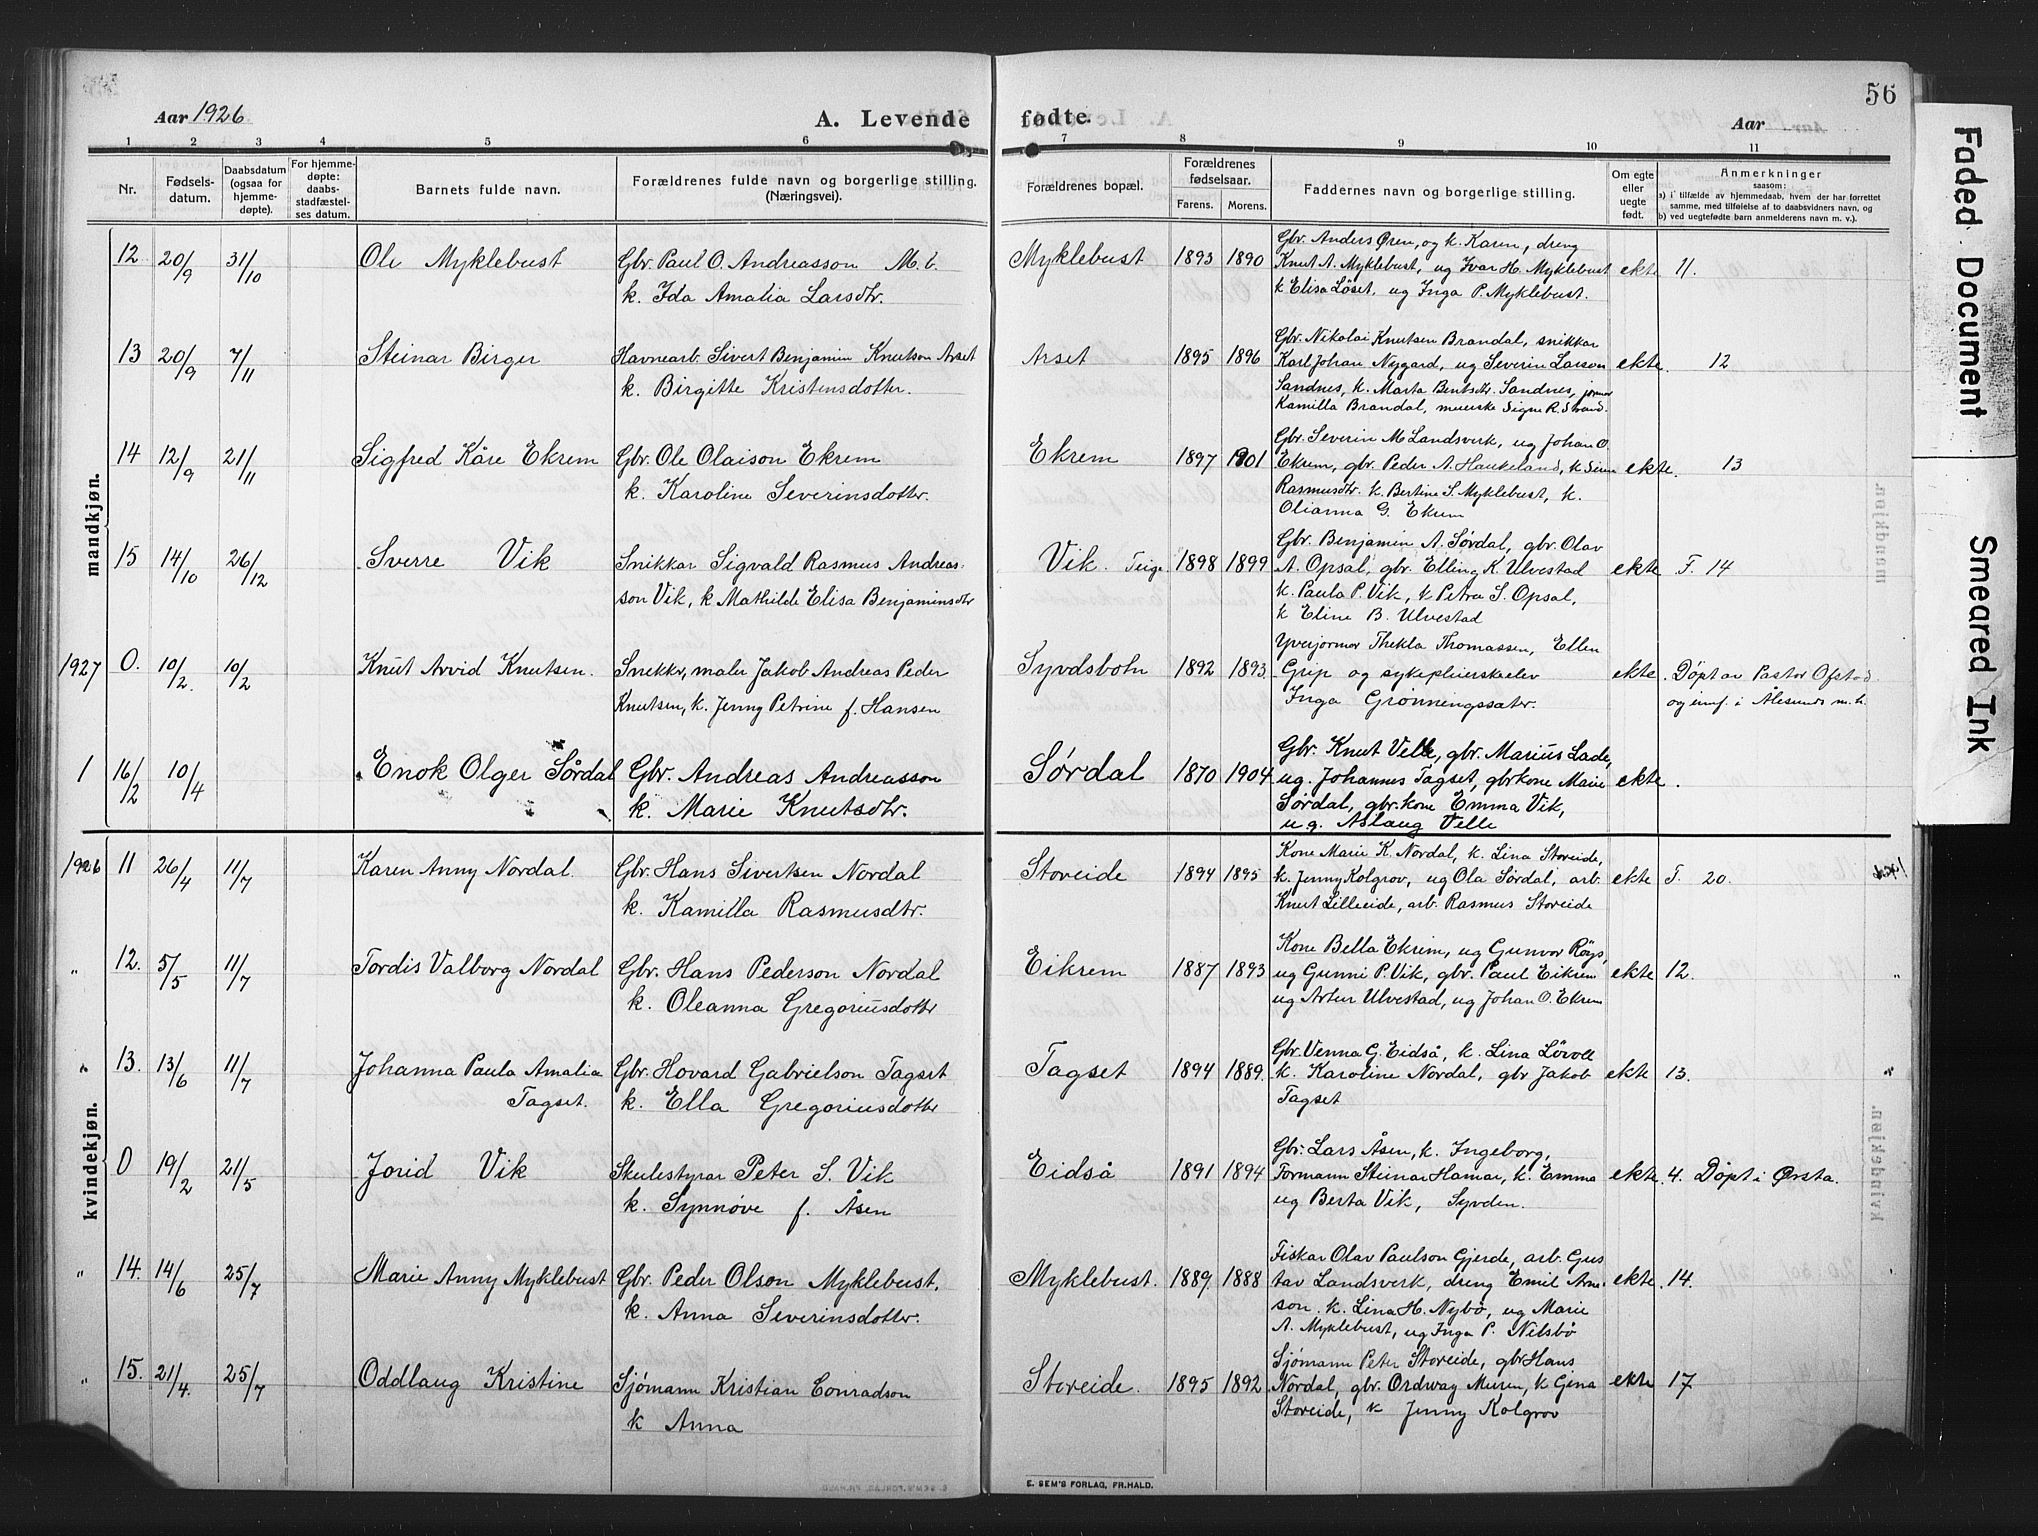 56
Aar 1926
A. Levende
fødte.
Aar
1 2 3 4 5 6 7 8 9 10 11
Nr.
Fødsels-
datum.
Daabsdatum
(ogsaa for
hjemme-
døpte).
For hjemme-
døpte:
daabs-
stadfæstel-
ses datum.
Barnets fulde navn.
Forældrenes fulde navn og borgerlige stilling.
(Næringsvei).
Forældrenes bopæl.
Forældrenes
fødselsaar.
Farens. Morens.
Faddernes navn og borgerlige stilling.
Om egte
eller
uegte
født.
Anmerkninger
saasom:
a) i tilfælde av hjemmedaab, hvem der har forrettet
samme, med tilføielse af to daabsvidners navn, og
b) ved uegtefødte barn anmelderens navn m. v.).
mandkjøn.
12 20/9 31/10 Ole Myklebust
Gbr. Paul O. Andreasson M.b.
k. Ida Amalia Larsdtr.
Myklebust 1893 1890
Gbr. Anders Øren, og k. Karen, dreng
Knut A. Myklebust, ug Ivar H. Myklebust
k Elisa Löset, ug Inga P. Myklebust.
ekte 11.
13 20/9 7/11 Steinar Birger
Havnearb. Sivert Benjamin Knutson Arset
k. Birgitte Kristensdotter.
Arset 1895 1896
Gbr. Nikolai Knutsen Brandal, snikkar
Karl Johan Nygard, ug Severin Larson
Sandnes, k. Marta Bentsdtr. Sandnes, jomor
Kamilla Brandal, meierske Signe R. Strand.
ekte. 12
14 12/9 21/11 Sigfred Kåre Ekrem
Gbr. Ole Olaison Ekrem
k. Karoline Severinsdotter.
Ekrem 1897 1901
Gbr. Severin M Landsverk, ug Johan O.
Ekrem, gbr. Peder A. Haukeland, k
Rasmusdtr. k. Bertine S. Myklebust, k.
Olianna G. Ekrem
ekte. 13
15 14/10 26/12 Sverre Vik
Snikkar Sigvald Rasmus Andreas-
son Vik, k Mathilde Elisa Benjaminsdtr
Vik. Teige 1898 1899
Gbr. Benjamin A. Sørdal, gbr. Olav
A. Opsal, gbr. Elling K. Ulvestad
k. Paula P. Vik, k Petra S. Opsal,
k Eline B. Ulvestad
ekte. F. 14
1927 0. 10/2. 10/2 Knut Arvid Knutsen.
Snekker, maler Jakob Andreas Peder
Knutsen, k. Jenny Petrine f. Hansen
Syvdsbotn 1892 1893.
Yverjormor Thekla Thomassen, Ellen
Grip og sykepleierskeelev
Inga Grönningssæter.
ekte. Döpt av Pastor Ofstad
og innf. i Ålesunds m.h.
1 16/2 10/4 Enok Olger Sørdal
Gbr. Andreas Andreasson
k. Marie Knutsdtr.
Sørdal 1870 1904
Gbr. Knut Velle, gbr. Marius Lade,
ug. Johannes Tagset, gbrkone Marie
Sørdal, gbr.kone Emma Vik,
ug. Aslaug Velle
ekte.
kvindekjøn.
1926 11 26/4 11/7 Karen Anny Nordal.
Gbr. Hans Sivertsen Nordal
k. Kamilla Rasmusdtr.
Storeide 1894 1895
Kone Marie K. Nordal, k. Lina Storeide,
k. Jenny Kolgrov, ug Ola Sördal, arb.
Knut Lilleeide, arb. Rasmus Storeide
ekte F. 20.
" 12. 5/5 11/7 Tordis Valborg Nordal
Gbr. Hans Pederson Nordal
k. Oleanna Gregoriusdotter
Eikrem 1887 1893
Kone Bella Ekrem, ug Gunvor Röys,
ug Gunni P. Vik, gbr. Paul Eikrem
ug Artur Ulvestad, ug Johan O. Ekrem
ekte 12.
" 13. 13/6 11/7 Johanna Paula Amalia
Tagset.
Gbr. Hovard Gabrielson Tagset
k. Ella Gregoriusdotter
Tagset 1894 1889.
Gbr. Venna G. Eidså, k. Lina Lövoll
k. Karoline Nordal, gbr Jakob
Tagset
ekte 13.
0 19/2 21/5 Jorid Vik
Skulestyrar Peter S. Vik
k. Synnöve f. Åsen
Eidså 1891 1894
Gbr. Lars Åsen, k. Ingeborg,
Formann Steinar Hamar, k. Emma
ug Berta Vik, Syvden.
ekte. 4. Döpt i Ørsta.
" 14. 14/6 25/7 Marie Anny Myklebust
Gbr. Peder Olson Myklebust.
k. Anna Severinsdotter.
Myklebust. 1889. 1888
Fiskar Olav Paulson Gjerde, arb. Gus
tav Landsverk, dreng Emil Arne-
son. k. Lina H. Nybö, ug Marie
A. Myklebust, ug Inga P. Nilsbö
ekte. 14.
" 15. 21/4. 25/7 Oddlaug Kristine
Sjömann Kristian Conradson
k Anna
Storeide. 1895 1892
Sjömann Peter Storeide, gbr Hans
Nordal, gbr. Ordway Muren, k Gina
Storeide, k Jenny Kolgrov
ekte 17
E. SEM'S FORLAG, FR.HALD.
Faded Document
Smeared Ink